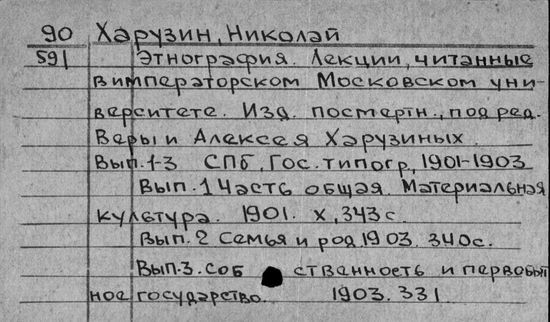 90 Харузин, Николай
591 Этнография. Лекции, читанные
в императорском Московском уни-
верситете. Изд. постертн., под ред.
Веры и Алексея Харузиных.
Вып. 1-3 СПб, Гос. типогр, 1901-1903
Вып. 1 Часть общая. Материальная
культура. 1901. X, 343 с.
Вып. 2 Семья и род 1903. 340с.
Вып. 3. соб ственность и первобыт
ное государство. 1903. 331